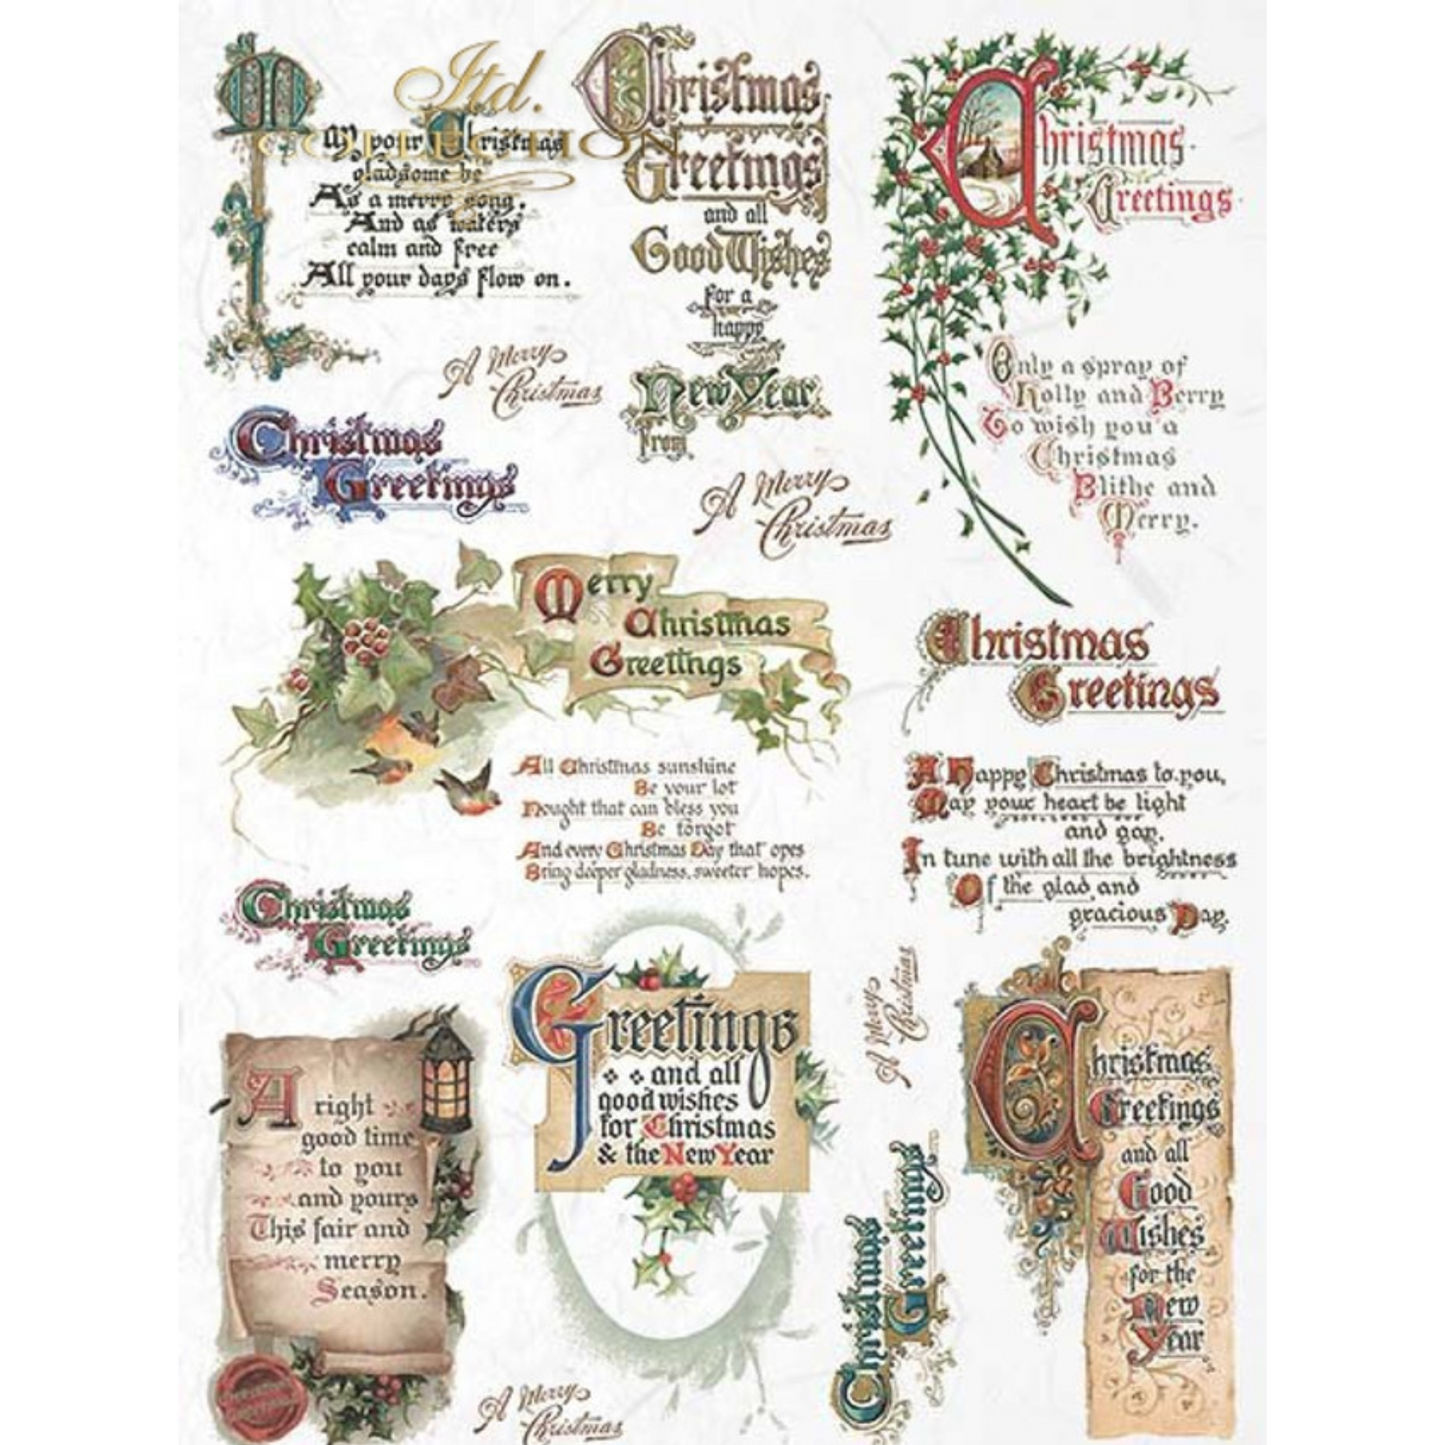 Itd.
COLLECTION
May your Christmas
gladsome be
As a merry song.
And as waters
calm and free
All your days flow on.
Christmas
Greetings
and all
Good Wishes
for a
happy
New Year
from
Christmas
Greetings
Only a spray of
Holly and Berry
To wish you a
Christmas
Blithe and
Merry.
A Merry
Christmas
Christmas
Greetings
A Merry
Christmas
Merry
Christmas
Greetings
All Christmas sunshine
Be your lot
Nought that can bless you
Be forgot
And every Christmas Day that opes
Bring deeper gladness, sweeter hopes.
Christmas
Greetings
A Happy Christmas to you,
May your heart be light
and gay,
In tune with all the brightness
Of the glad and
gracious Day.
Christmas
Greetings
A right
good time
to you
and yours
This fair and
merry
Season.
Greetings
and all
good wishes
for Christmas
& the New Year
A Merry
Christmas
Christmas
Greetings
Christmas
Greetings
and all
Good
Wishes
for the
New
Year
A Merry
Christmas